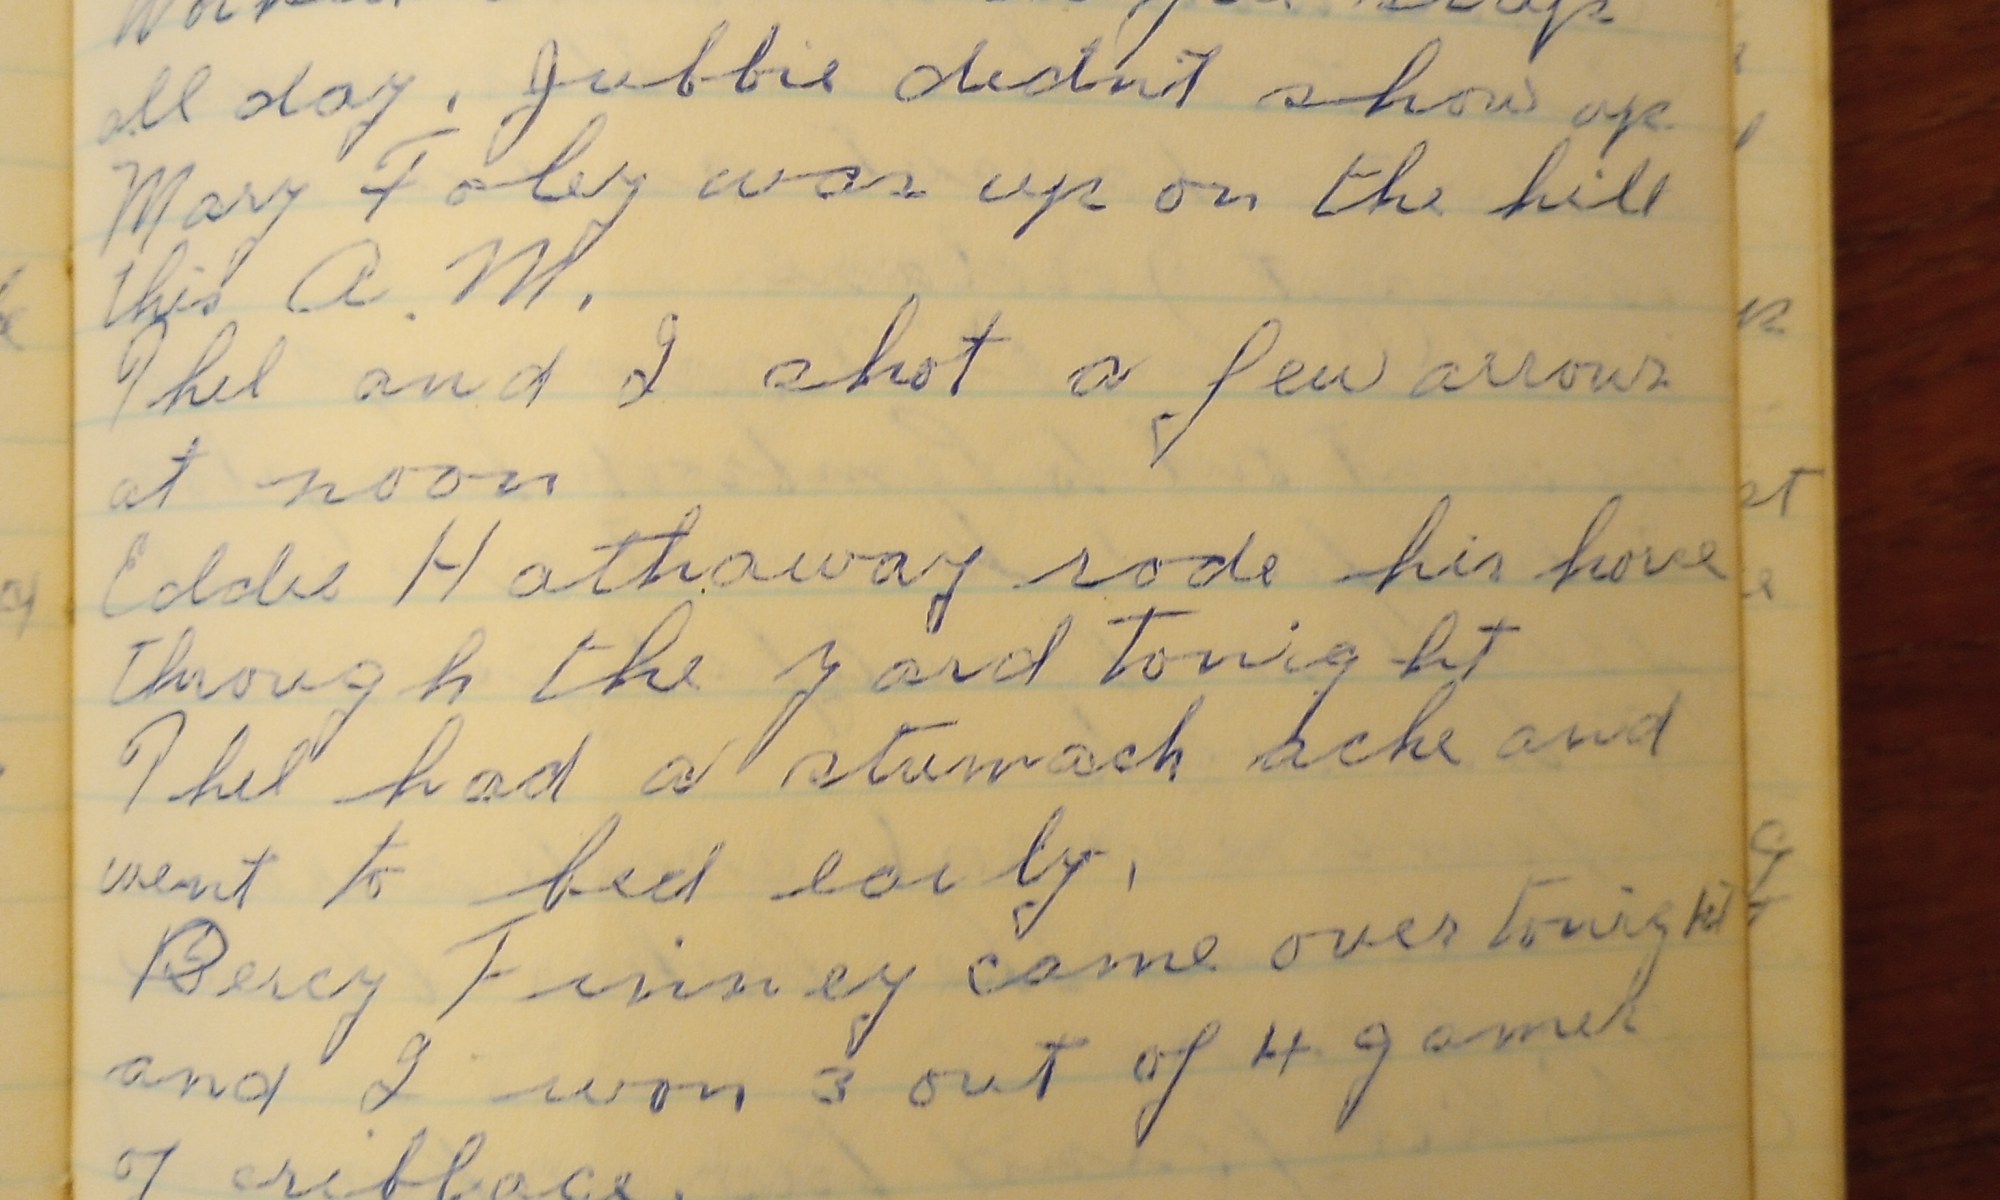 all day. Jubbie didn't show up
Mary Foley was up on the hill
this A.M.
Thel and I shot a few arrows
at noon
Eddie Hathaway rode his horse
through the yard tonight
Thel had a stumach ache and
went to bed early.
Percy Finney came over tonight
and I won 3 out of 4 games
of cribbage.